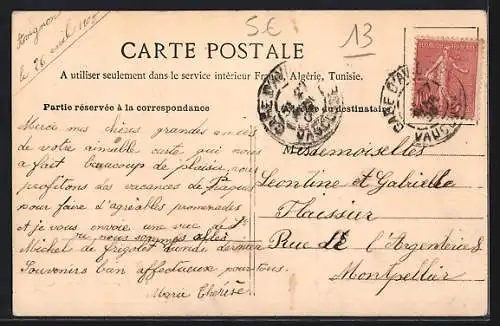 Avignon
le 26 avril 190
5€
13
CARTE POSTALE
A utiliser seulement dans le service intérieur France, Algérie, Tunisie.
Partie réservée à la correspondance
du destinataire
GARE D'AV
VAUCLUSE
GARE D'AV
VAUCLUSE
Merci mes chères grandes amies
de votre aimable carte qui nous
a fait beaucoup de plaisir, nous
profitons des vacances de Pâques
pour faire d'agréables promenades
et je vous envoie une vue de St
Michel de Frigolet
où nous sommes allés
lundi dernier
Souvenirs bien affectueux pour tous.
Marie Thérèse
Mesdemoiselles
Leontine et Gabrielle
Flaissier
Rue de l'Argenterie 8
Montpellier